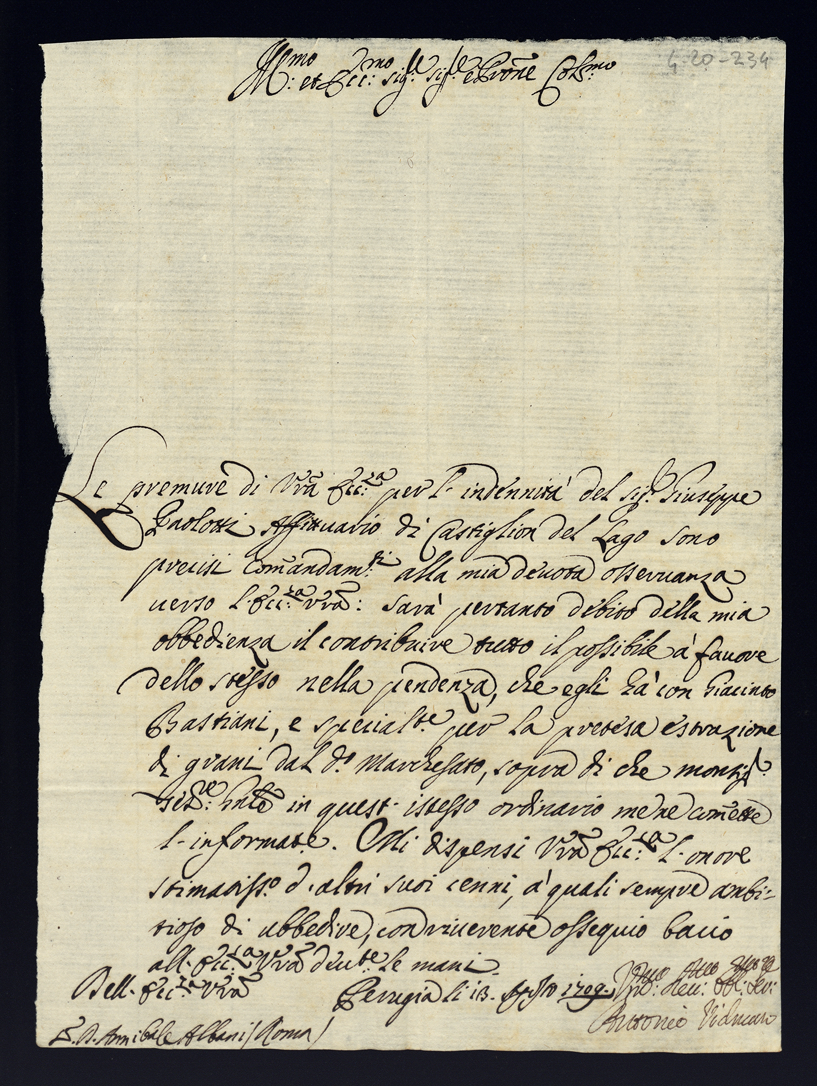 4-20-234
Ill.mo et Ecc.mo Sig.re Sig.re e Prōne Col.mo
Le premure di Vrā Ecc.za per l'indennità del sig.r Giuseppe
Paolotti Affittuario di Castiglion del Lago sono
precisi comandam.ti alla mia devota osseruanza
uerso l'Ecc.za Vrā: sarà pertanto debito della mia
obbedienza il contribuire tutto il possibile à fauore
dello stesso nella pendenza, che egli hà con Giacinto
Bastiani, e special.te per la pretesa estrazione
di grani dal d.o Marchesato, sopra di che monsig.r
in quest'istesso ordinario me ne comette
l'informat.e. Mi dispensi Vrā Ecc.za l'onore
stimatiss.o d'altri suoi cenni, à quali sempre ambi=
tioso di ubbedire, con riuerente ossequio bacio
all'Ecc.za Vrā deu.te le mani
Dell'Ecc.za Vrā
Perugia li 13 Agosto 1709.
Antonio Vidman
S. D. Annibale Albani (Roma)